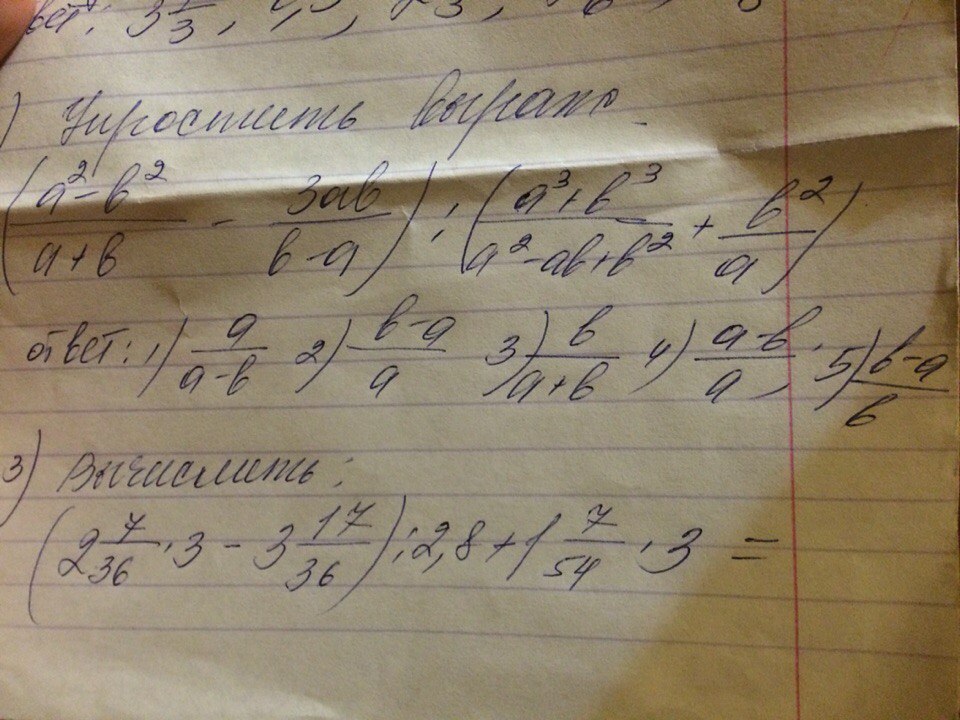 ) Упростить выраж
((a²-b²)/(a+b) - 3ab/(b-a)) : ((a³+b³)/(a²-ab+b²) + b²/a)
ответ: 1) a/(a-b) 2) (b-a)/a 3) b/(a+b) 4) (a-b)/a; 5) (b-a)/b
3) Вычислить:
(2 7/36 · 3 - 3 17/36) : 2,8 + 1 7/54 · 3 =